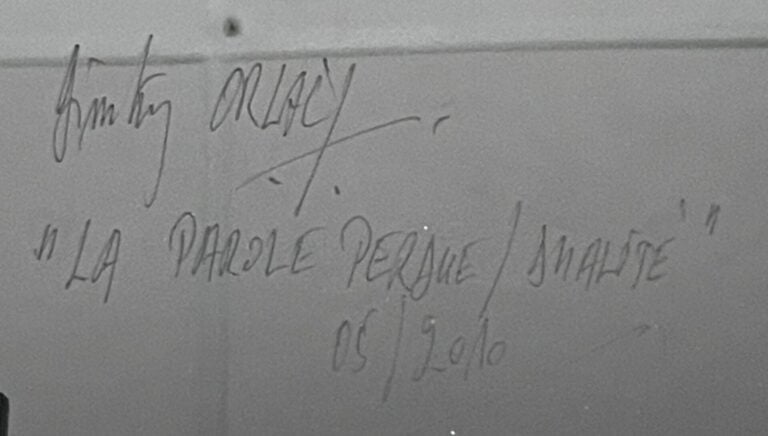 ORLACY
"LA PAROLE PERDUE / DUALITÉ"
05/2010